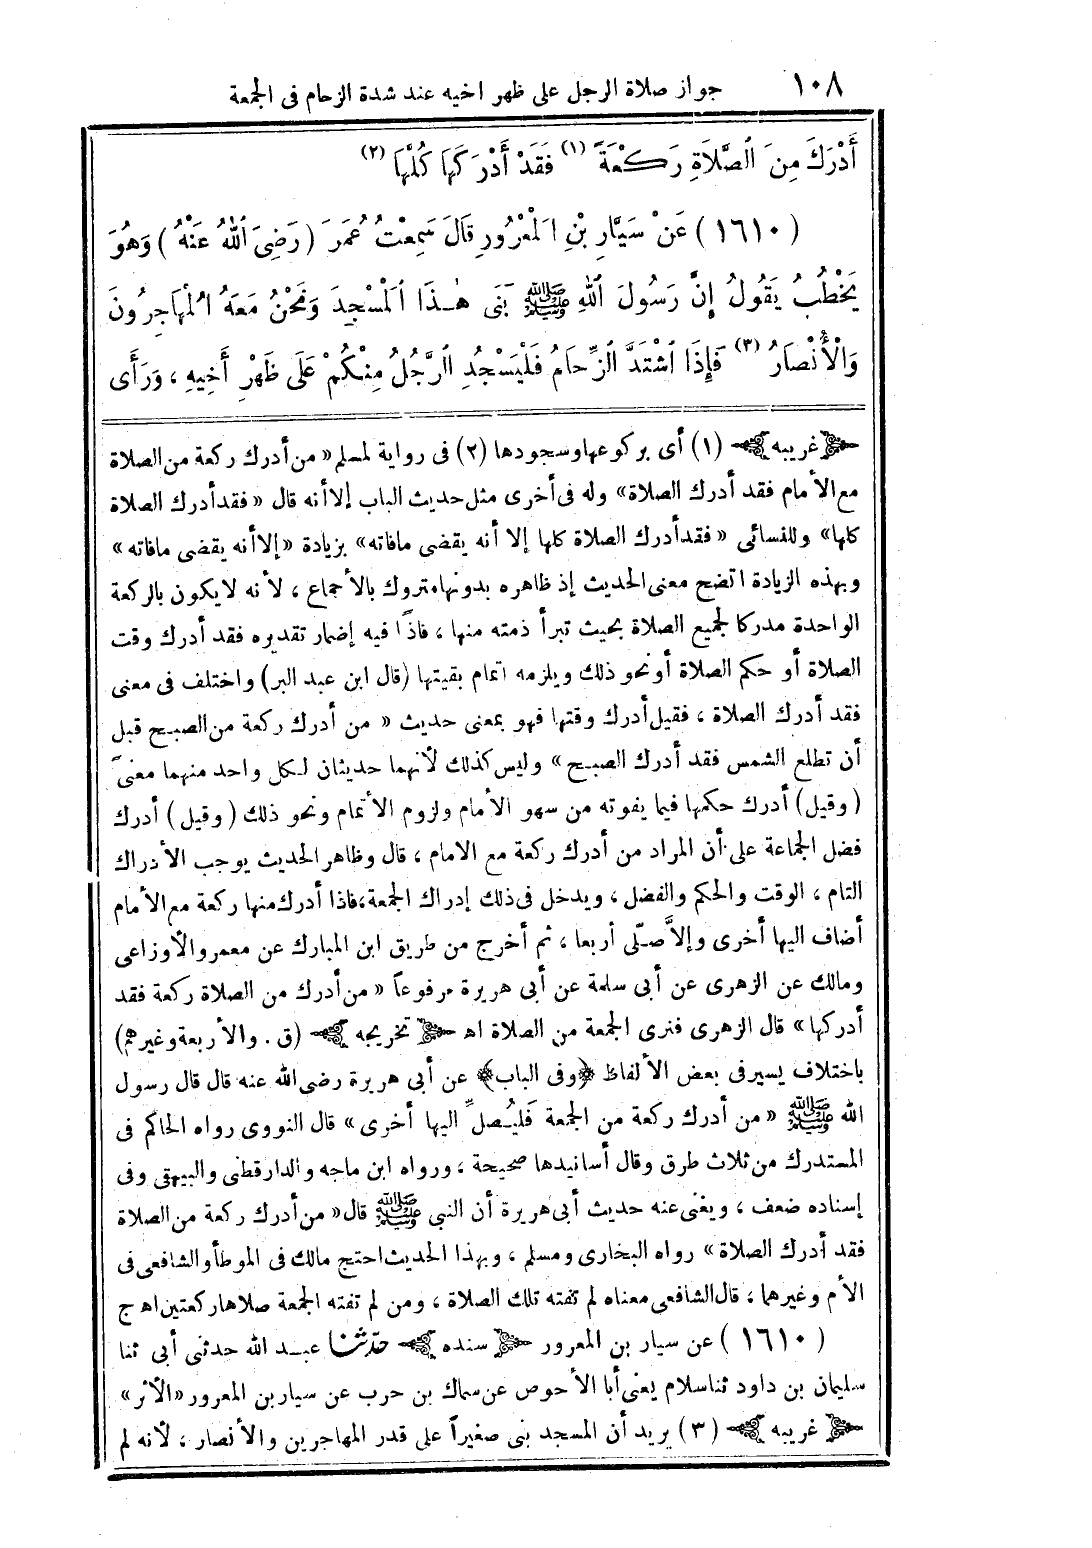 ١٠٨ جواز صلاة الرجل على ظهر اخيه عند شدة الزحام فى الجمعة
أَدْرَكَ مِنَ الصَّلَاةِ رَكْعَةً (١) فَقَدْ أَدْرَكَهَا كُلَّهَا (٢)
(١٦١٠) عَنْ سَيَّارِ بْنِ الْمَعْرُورِ قَالَ سَمِعْتُ عُمَرَ (رَضِىَ اللهُ عَنْهُ) وَهُوَ
يَخْطُبُ يَقُولُ إِنَّ رَسُولَ اللهِ ﷺ بَنَى هٰذَا الْمَسْجِدَ وَنَحْنُ مَعَهُ الْمُهَاجِرُونَ
وَالْأَنْصَارُ (٣) فَإِذَا اشْتَدَّ الزِّحَامُ فَلْيَسْجُدِ الرَّجُلُ مِنْكُمْ عَلَى ظَهْرِ أَخِيهِ ، وَرَأَى
﴿غريبه﴾ (١) أى بركوعها وسجودها (٢) فى رواية لمسلم « من أدرك ركعة من الصلاة
مع الأمام فقد أدرك الصلاة» وله فى أخرى مثل حديث الباب إلا أنه قال « فقد أدرك الصلاة
كلها» وللنسائى « فقد أدرك الصلاة كلها إلا أنه يقضى مافاته» بزيادة «إلا أنه يقضى مافاته»
وبهذه الزيادة اتضح معنى الحديث إذ ظاهره بدونها متروك بالأجماع ، لأنه لا يكون بالركعة
الواحدة مدركا لجميع الصلاة بحيث تبرأ ذمته منها ، فاذًا فيه إضمار تقديره فقد أدرك وقت
الصلاة أو حكم الصلاة أو نحو ذلك ويلزمه اتمام بقيتها (قال ابن عبد البر) واختلف فى معنى
فقد أدرك الصلاة ، فقيل أدرك وقتها فهو بمعنى حديث « من أدرك ركعة من الصبح قبل
أن تطلع الشمس فقد أدرك الصبح » وليس كذلك لأنهما حديثان لكل واحد منهما معنىً
(وقيل) أدرك حكمها فيما يفوته من سهو الأمام ولزوم الأتمام ونحو ذلك (وقيل) أدرك
فضل الجماعة على أن المراد من أدرك ركعة مع الامام ، قال وظاهر الحديث يوجب الأدراك
التام ، الوقت والحكم والفضل ، ويدخل فى ذلك إدراك الجمعة، فاذا أدرك منها ركعة مع الأمام
أضاف اليها أخرى وإلا صلّى أربعا ، ثم أخرج من طريق ابن المبارك عن معمر والأوزاعى
ومالك عن الزهرى عن أبى سلمة عن أبى هريرة مرفوعاً « من أدرك من الصلاة ركعة فقد
أدركها » قال الزهرى فنرى الجمعة من الصلاة اه ﴿تخريجه﴾ (ق . والأربعة وغيرهم)
باختلاف يسير فى بعض الألفاظ ﴿وفى الباب﴾ عن أبى هريرة رضى الله عنه قال قال رسول
الله ﷺ « من أدرك ركعة من الجمعة فَليُصلِّ اليها أخرى » قال النووى رواه الحاكم فى
المستدرك من ثلاث طرق وقال أسانيدها صحيحة ، ورواه ابن ماجه والدارقطنى والبيهقى وفى
إسناده ضعف ، ويغنى عنه حديث أبى هريرة أن النبى ﷺ قال « من أدرك ركعة من الصلاة
فقد أدرك الصلاة » رواه البخارى ومسلم ، وبهذا الحديث احتج مالك فى الموطأ والشافعى فى
الأم وغيرهما ، قال الشافعى معناه لم تفته تلك الصلاة ، ومن لم تفته الجمعة صلاها ركعتين اه ج
(١٦١٠) عن سيار بن المعرور ﴿سنده﴾ حدّثنا عبد الله حدثنى أبى ثنا
سليمان بن داود ثنا سلام يعنى أبا الأحوص عن سماك بن حرب عن سيار بن المعرور «الأثر»
﴿غريبه﴾ (٣) يريد أن المسجد بنى صغيراً على قدر المهاجرين والأنصار ، لأنه لم